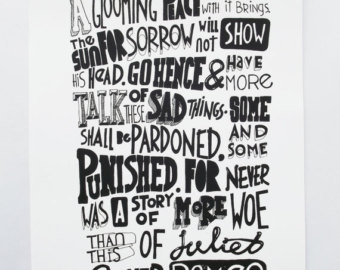 A GLOOMING PEACE WITH IT BRINGS.
THE SUN FOR SORROW will not SHOW
HIS HEAD. GO HENCE & HAVE MORE
TALK OF THESE SAD THINGS. SOME
SHALL BE PARDONED, AND SOME
PUNISHED. FOR NEVER
WAS A STORY OF MORE WOE
THAN THIS OF Juliet
ROMEO